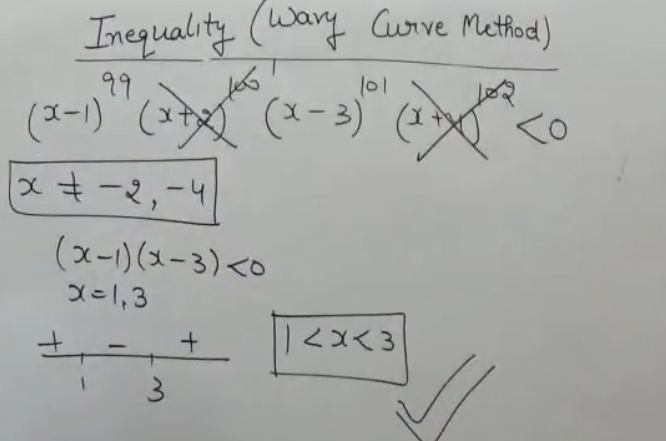 Inequality (Wavy Curve Method)
(x-1)^99 (x+2)^100 (x-3)^101 (x+4)^102 <0
x ≠ -2, -4
(x-1)(x-3) <0
x=1,3
+ - +
1 3
1<x<3